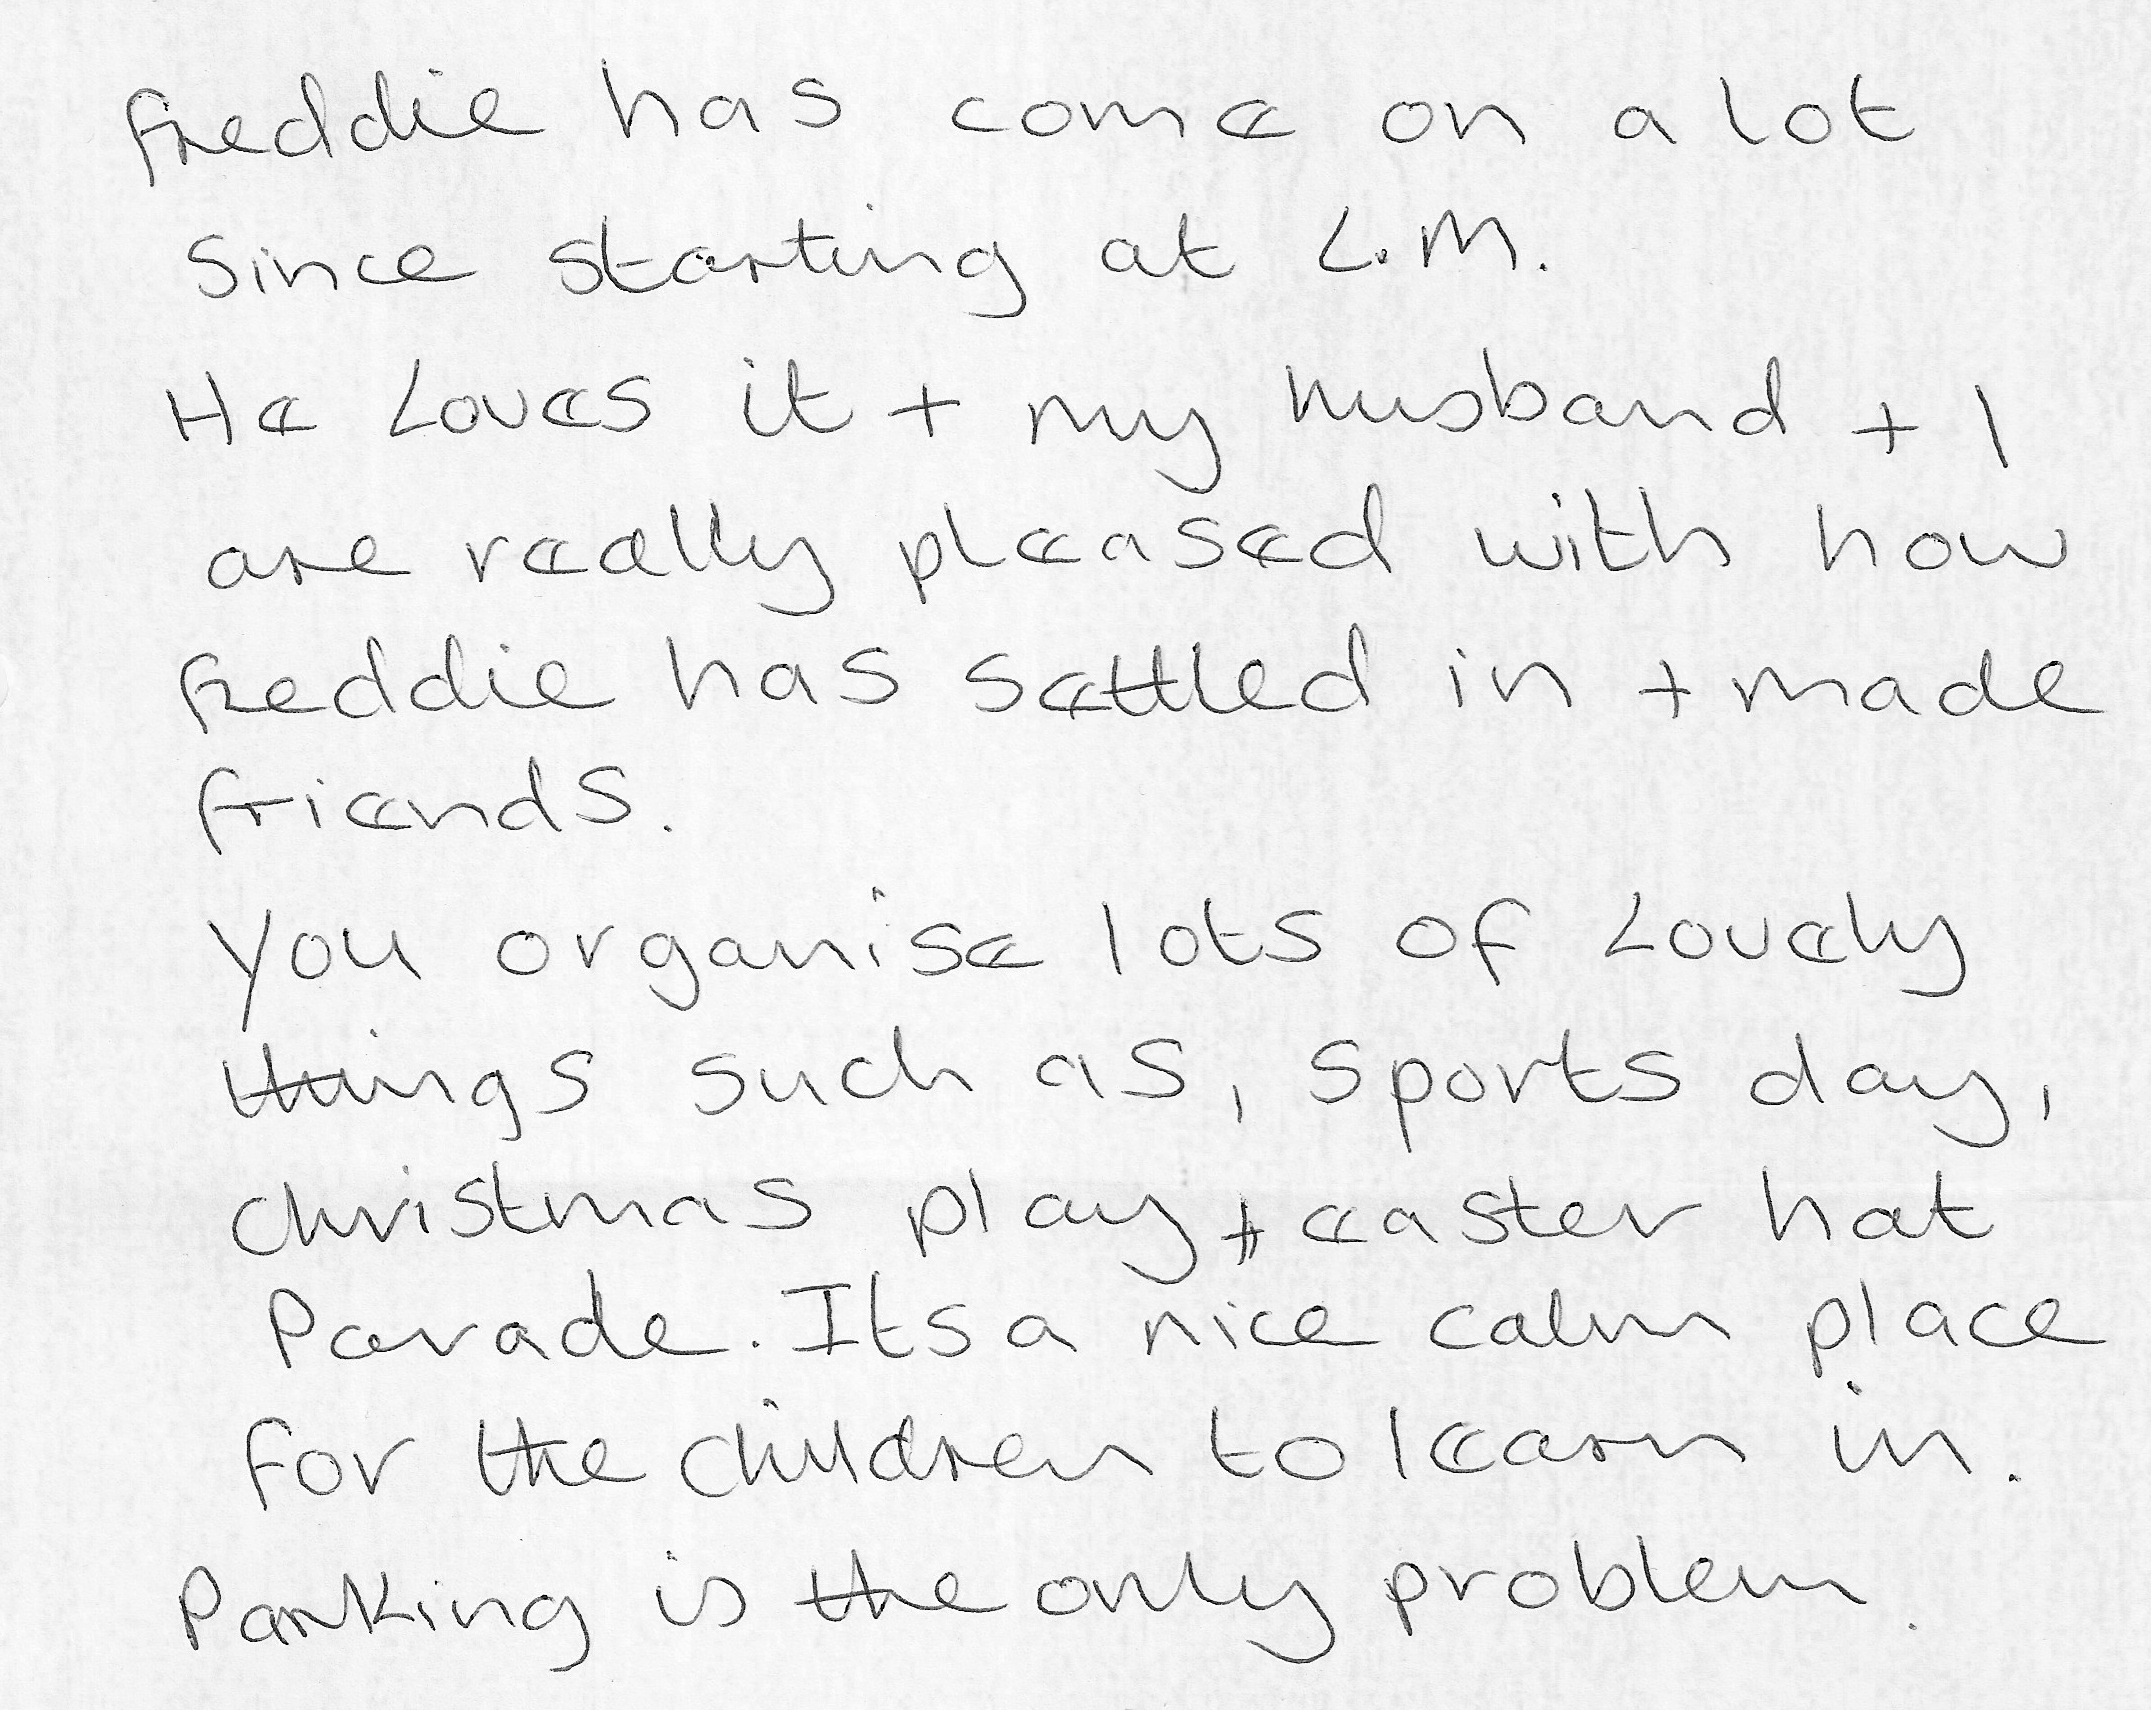 freddie has come on a lot
since starting at L.M.
He Loves it + my husband + I
are really pleased with how
freddie has settled in + made
friends.
You organise lots of Lovely
things such as, sports day,
christmas play + easter hat
Parade. Its a nice calm place
for the children to learn in.
Parking is the only problem.